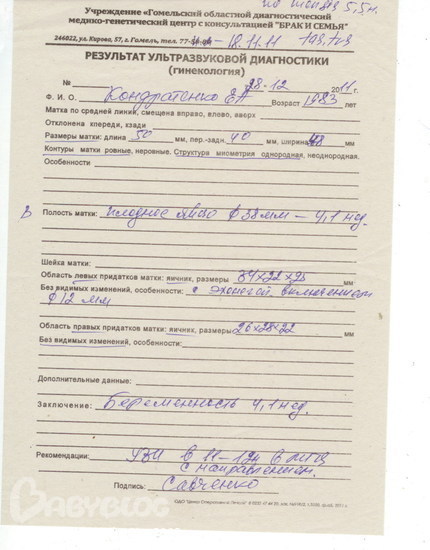 по
5,5 н.
Учреждение «Гомельский областной диагностический
медико-генетический центр с консультацией "БРАК И СЕМЬЯ"
246022, ул. Кирова, 57, г. Гомель, тел. 77- 18.11.11
РЕЗУЛЬТАТ УЛЬТРАЗВУКОВОЙ ДИАГНОСТИКИ
(гинекология)
№ 28.12 2011 г.
Ф. И. О. Кондратенко ЕА Возраст 1983 лет
Матка по средней линии, смещена вправо, влево, кверху
Отклонена кпереди, кзади
Размеры матки: длина 50 мм, пер.-задн. 40 мм, ширина 48 мм
Контуры матки ровные, неровные. Структура миометрия однородная, неоднородная.
Особенности
В Полость матки: плодное яйцо ф 38 мм – 4,1 нед.
Шейка матки:
Область левых придатков матки: яичник, размеры 34х22х25 мм
Без видимых изменений, особенности: с эхоногой. включением
ф 12 мм
Область правых придатков матки: яичник, размеры 26х28х22 мм
Без видимых изменений, особенности:
Дополнительные данные:
Заключение: Беременность 4,1 нед.
Рекомендации: УЗИ в 11-12н в МГЦ
с направлением.
Подпись: Савченко
BABYBLOG